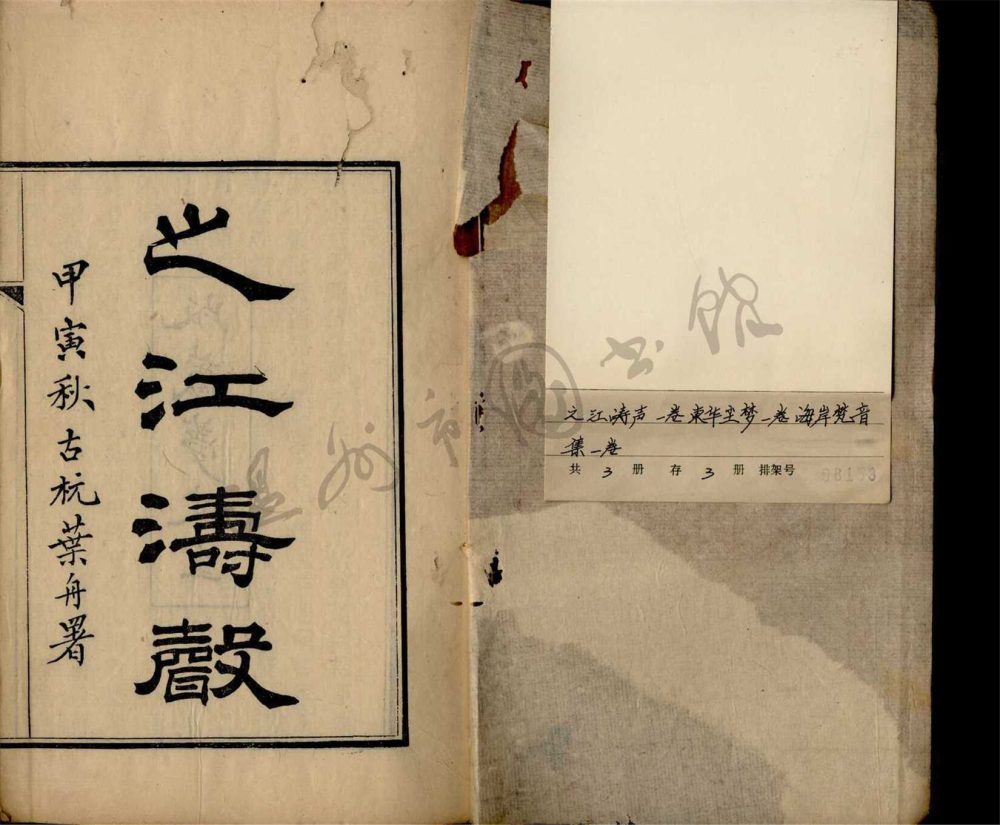 之江濤聲
甲寅秋古杭葉舟署
之江涛声一卷东华尘梦一卷海岸梵音
集一卷
共 3 册 存 3 册 排架号
温州市圖书館